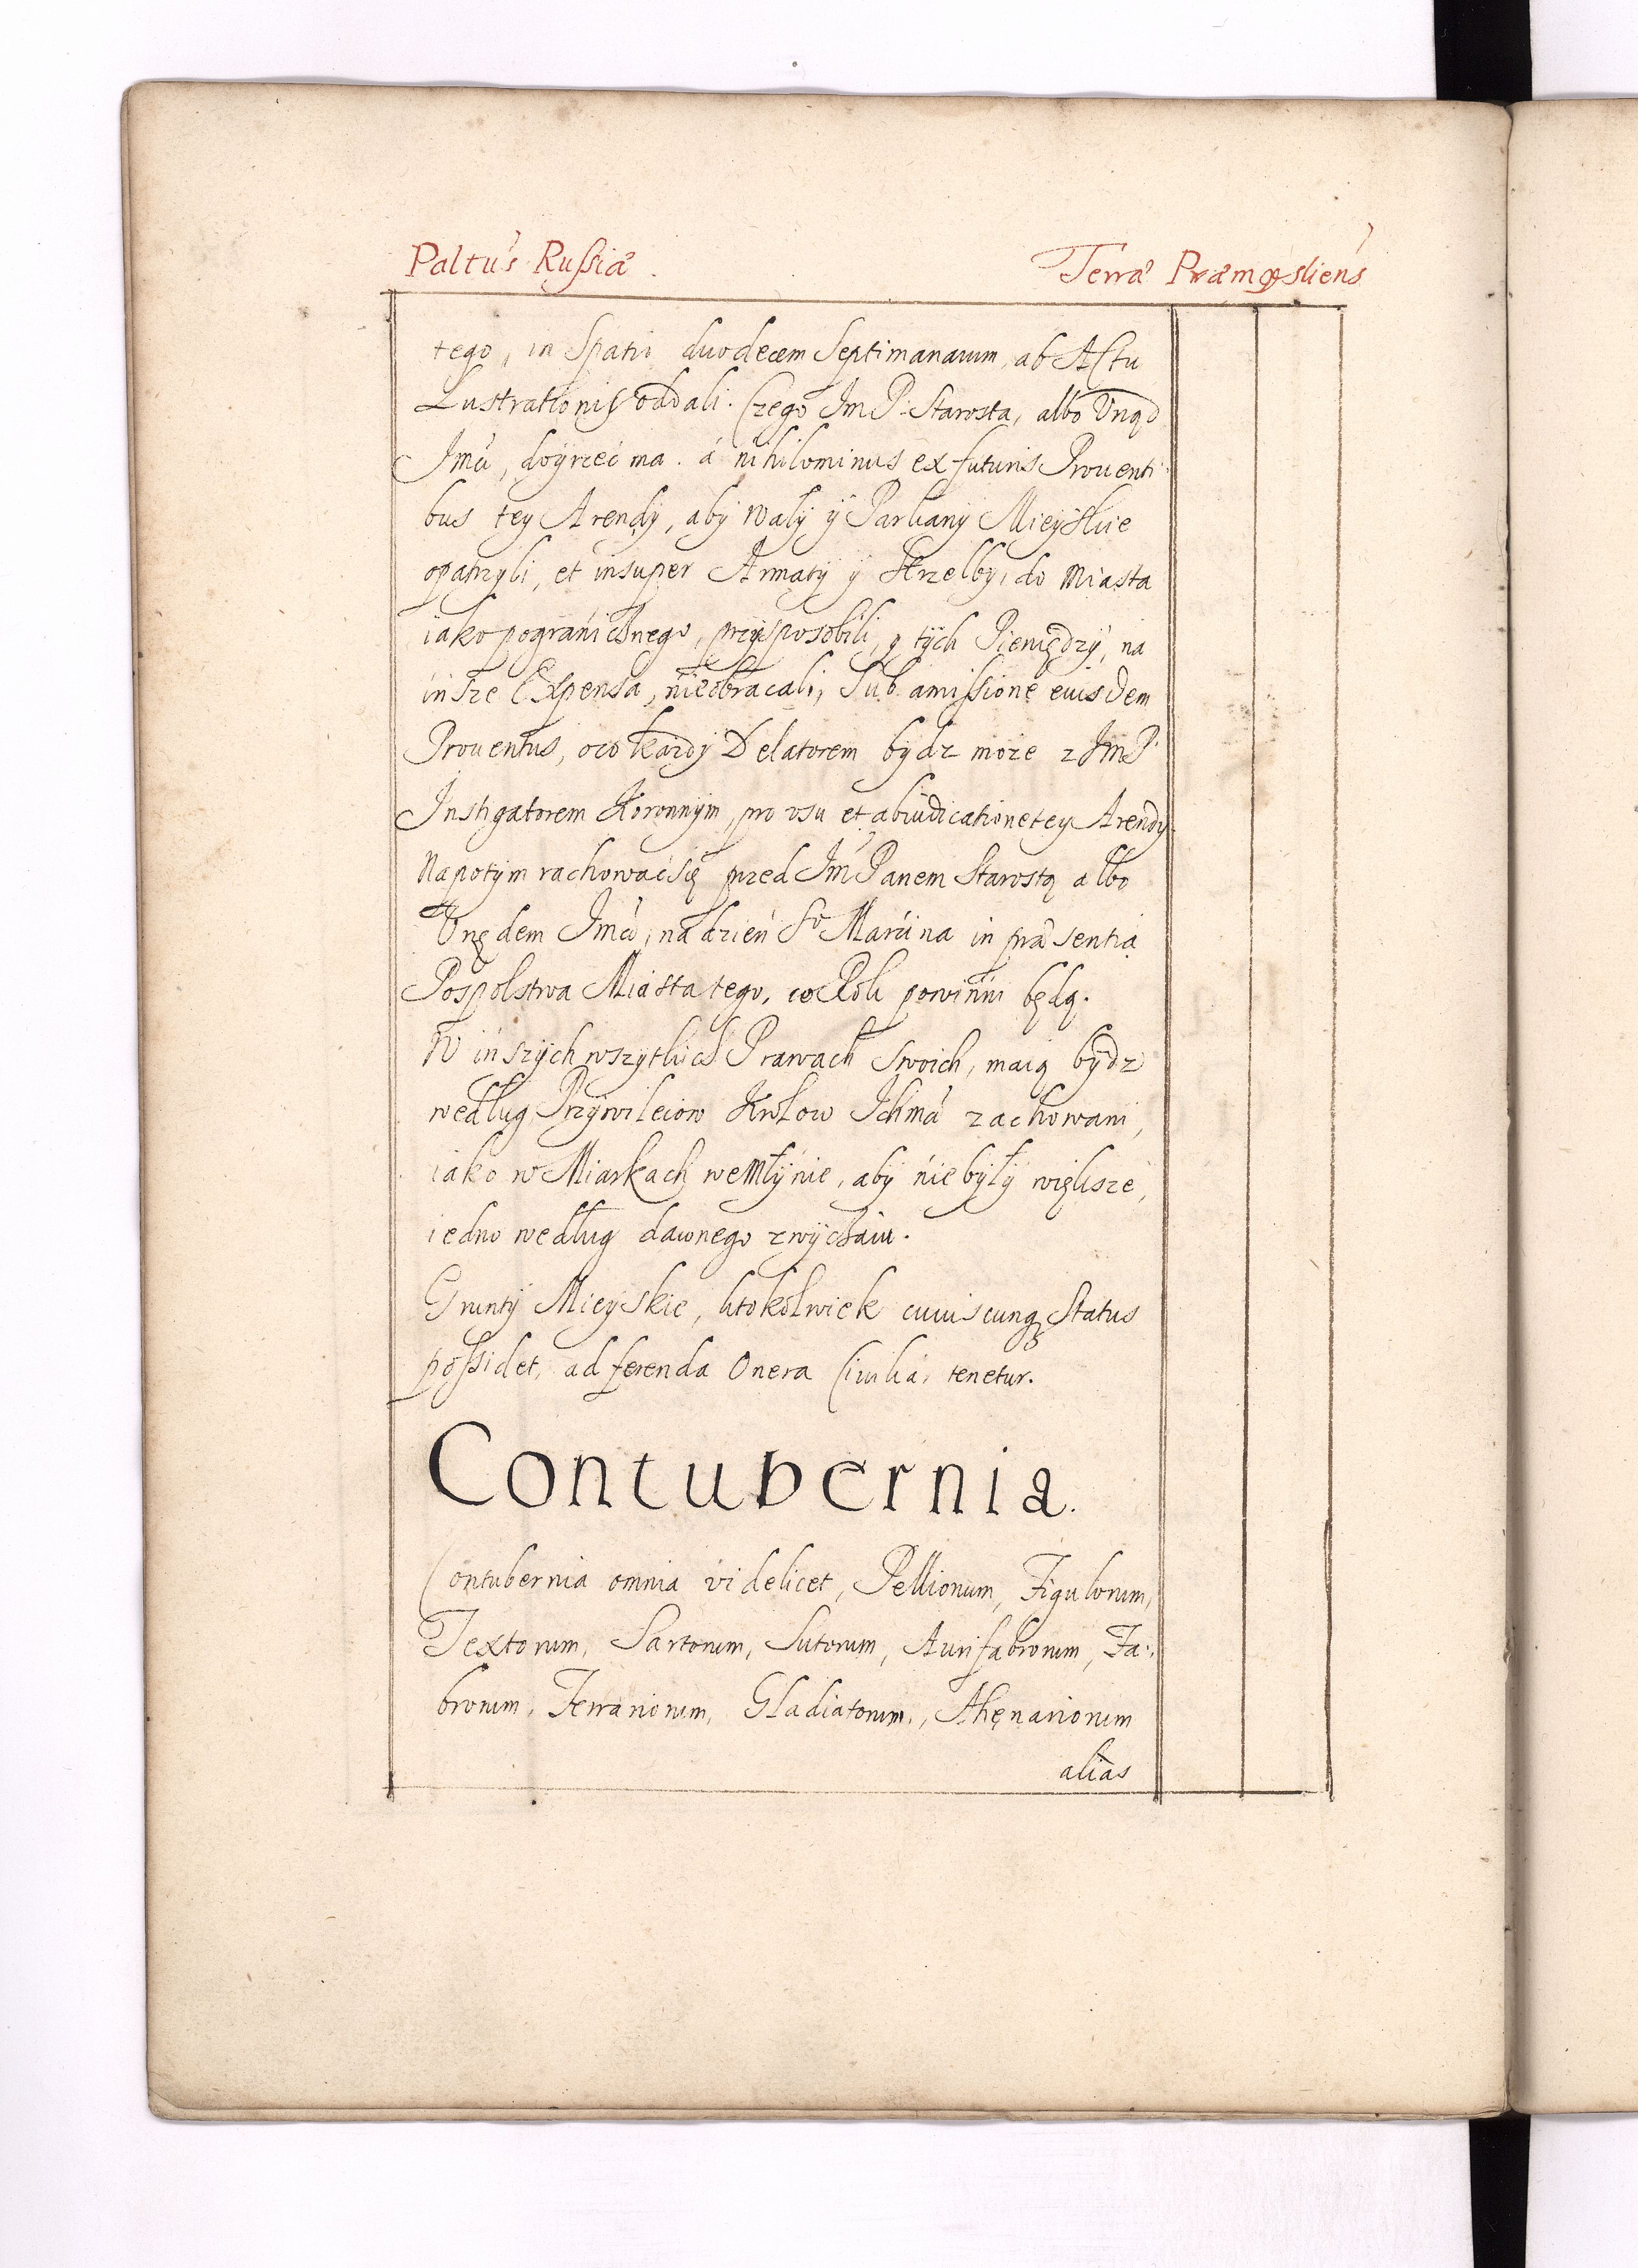 Paltus Russiæ.
Terræ Præmysliens
tego, in Spatio duodecem Septimanarum, ab Actu
Lustrationis oddali. Czego Im P. Starosta, albo Urząd
Imci, doyrzeć ma. á nihilominus ex futuris Prouenti
bus tey Arendy, aby waly y Parkany Mieyskie
opatrzyli, et insuper Armaty y Strzelby, do Miasta
iako pogranicznego, przysposobili, y tych Pieniędzy, na
insze Expensa, nieobracali, Sub amissione eiusdem
Prouentus, oco kazdy Delatorem bydz moze z Im P.
Instigatorem Koronnym, pro usu et abiudicatione tey Arendy
Napotym rachować się przed Im Panem Starostą albo
Urzędem Imci, na dzień So Marcina in præsentia
Pospolstwa Miasta tego, co Rok powinni będą.
W inszych wszytkich Prawach Swoich, maią bydz
według Przywileiow Krolow Ichmci zachowani,
iako w Miarkach we Młynie, aby niebyły większe,
iedno według dawnego zwyczaiu.
Grunty Mieyskie, ktokolwiek cuiuscunq Status
possidet, ad ferenda Onera Ciuilia, tenetur.
Contubernia.
Contubernia omnia videlicet, Pellionum, Figulorum,
Textorum, Sartorum, Sutorum, Aurifabrorum, Fa:
brorum, Ferrariorum, Gladiatorum, Athęnariorum
alias